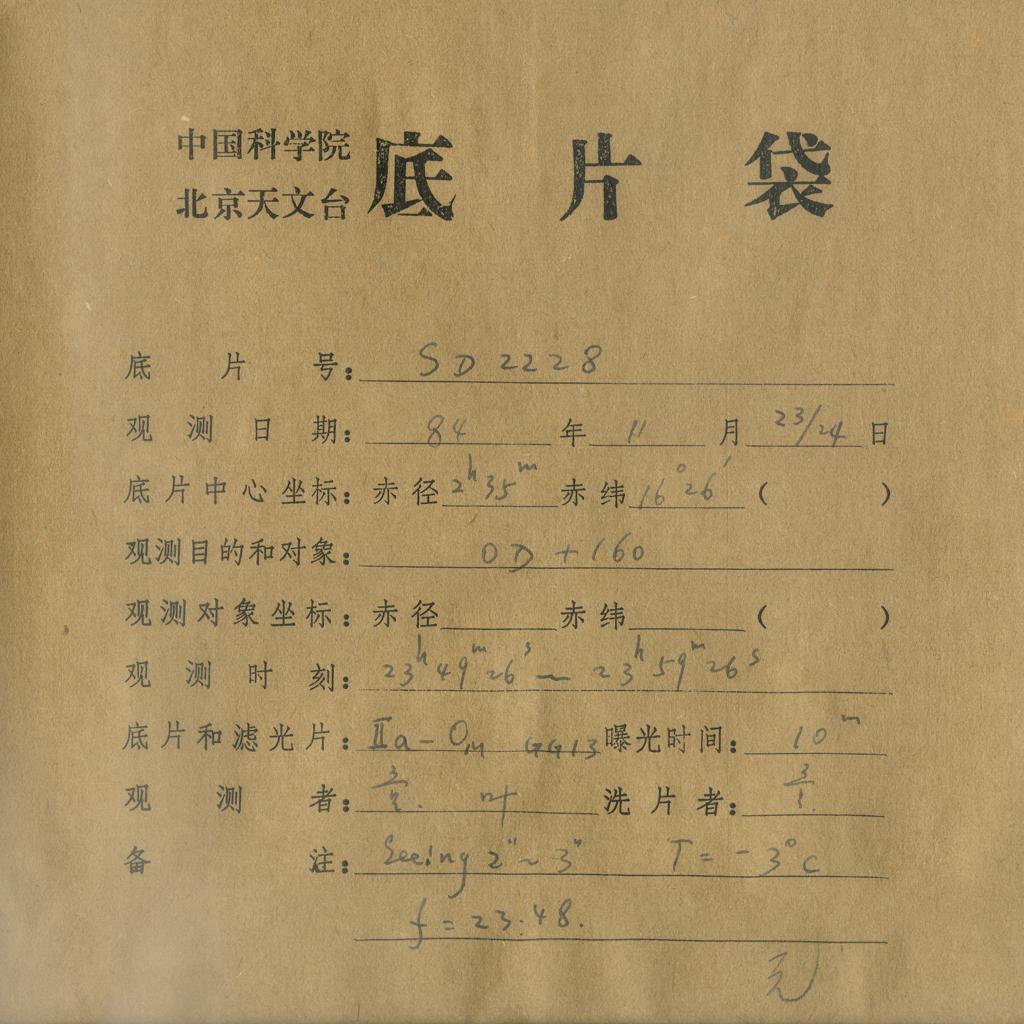 中国科学院
北京天文台
底片袋
底片号: SD2228
观测日期: 84 年 11 月 23/24 日
底片中心坐标: 赤径 2h35m 赤纬 16°26′ ( )
观测目的和对象: OD+160
观测对象坐标: 赤径 赤纬 ( )
观测时刻: 23h49m26s ~ 23h59m26s
底片和滤光片: IIa-O, GG13 曝光时间: 10m
观测者: 叶 洗片者:
备注: Seeing 2"~3" T=-3°C
f=23.48.